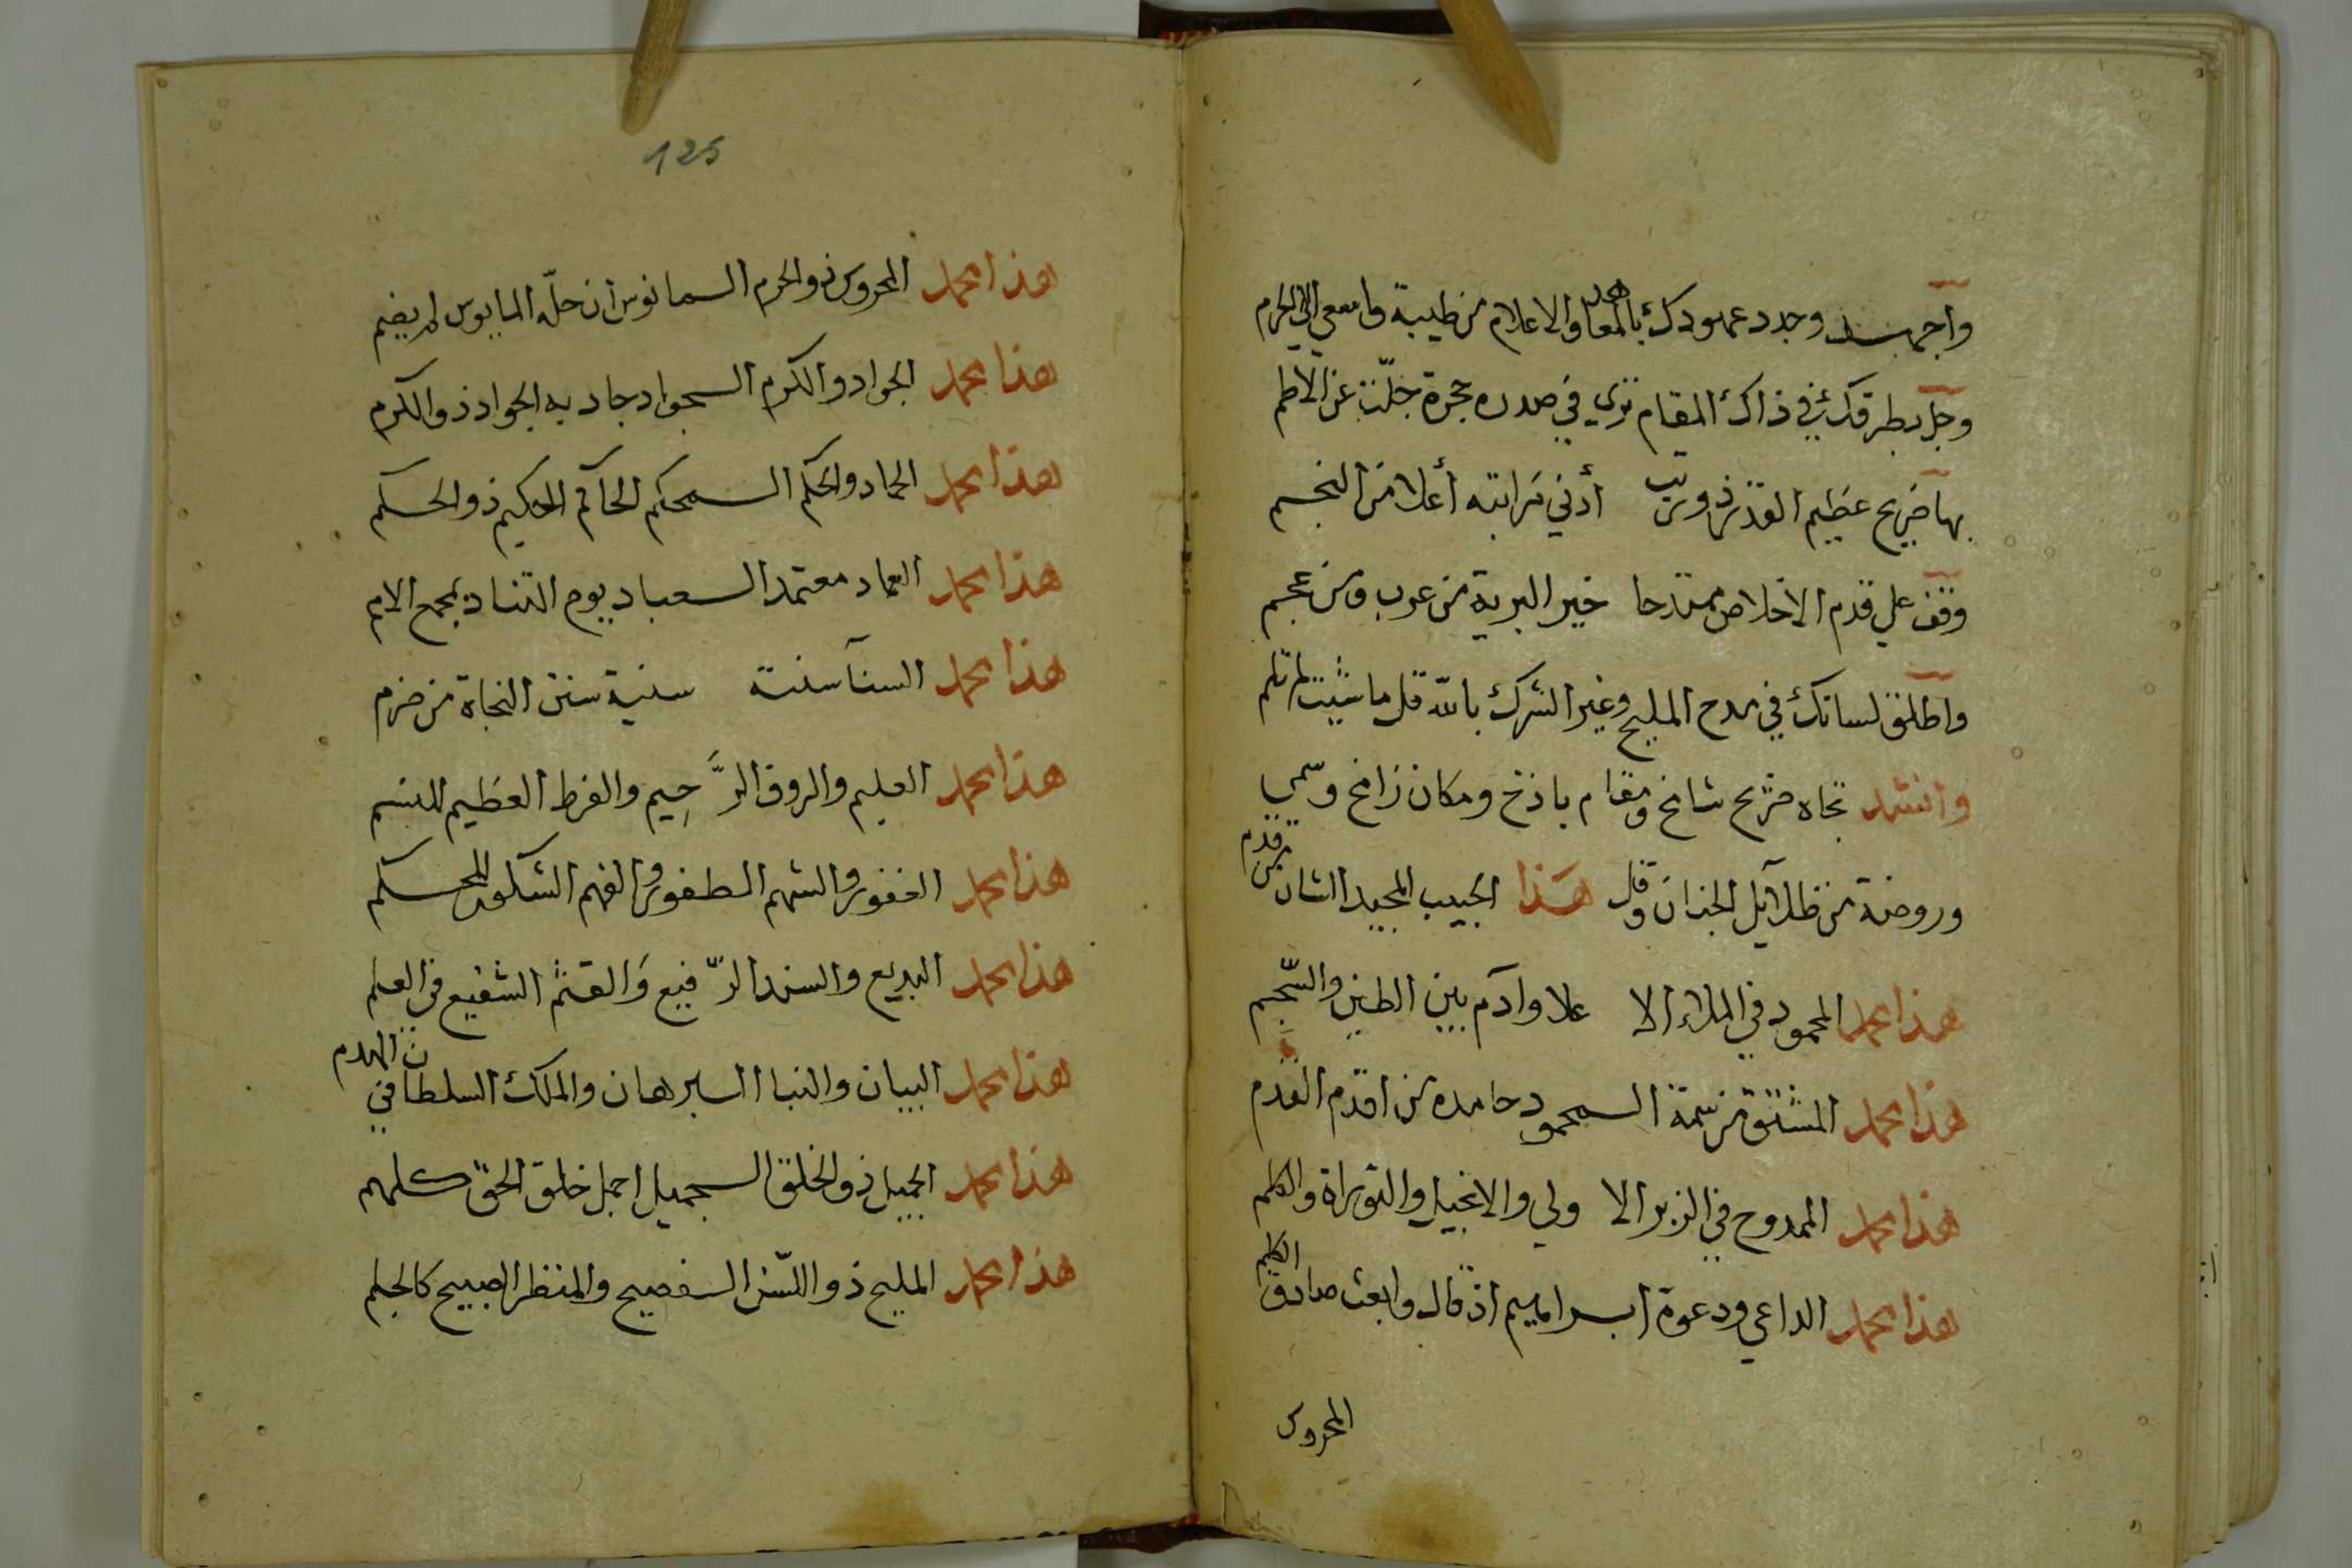 واجهد وجدد عهودك بالمعاهد والاعلام من طيبة واسعي الي الحرم
وجل بطرفك في ذاك المقام تري في صدره حجرة جلّت عن الاطم
بها ضريح عظيم القدر ذو رتب أدني مراتبه أعلا من النجم
وقف علي قدم الاخلاص ممتدحا خير البرية من عرب ومن عجم
واطلق لسانك في مدح المليح وغير الشرك بالله قل ما شيت لم تلم
وانشد تجاه ضريح شامخ ومقام باذخ ومكان زامخ وسمي
وروضة من ظلآيل الجنان وقل هذا الحبيب المجيد الشان من قدم
هذا محمد المحمود في الملاء الا علا وآدم بين الطين والسّجم
هذا محمد المشتق من سمة المحمود حامده من اقدم القدم
هذا محمد الممدوح في الزبر الا ولي والانجيل والتوراة والكلم
هذا محمد الداعي ودعوة ابراهيم اذ قال وابعث صادق الكلم
المحروس
125
هذا محمد المحروس ذو الحرم المانوس ان حلّه المايوس لم يضم
هذا محمد الجواد والكرم الجواد جاد به الجواد ذو الكرم
هذا محمد الحماد والحكم المحكم الحاكم الحكيم ذو الحكم
هذا محمد العماد معتمد العباد يوم التناد بمجمع الامم
هذا محمد السنآ سنت سنية سنن النجاة من ضرم
هذا محمد العليم والروف الرَّحِيم والفرط العظيم للنسم
هذا محمد الغفور والشهم الطفور والفهم الشكور للحكم
هذا محمد البديع والسند الرّفيع وَالقثم الشفيع في العلم
هذا محمد البيان والنبا البرهان والملك السلطان في الهدم
هذا محمد الجميل ذو الخلق الجميل اجمل خلق الحق كلهم
هذا محمد المليح ذو اللسّن الفصيح والمنظر الصبيح كالجلم